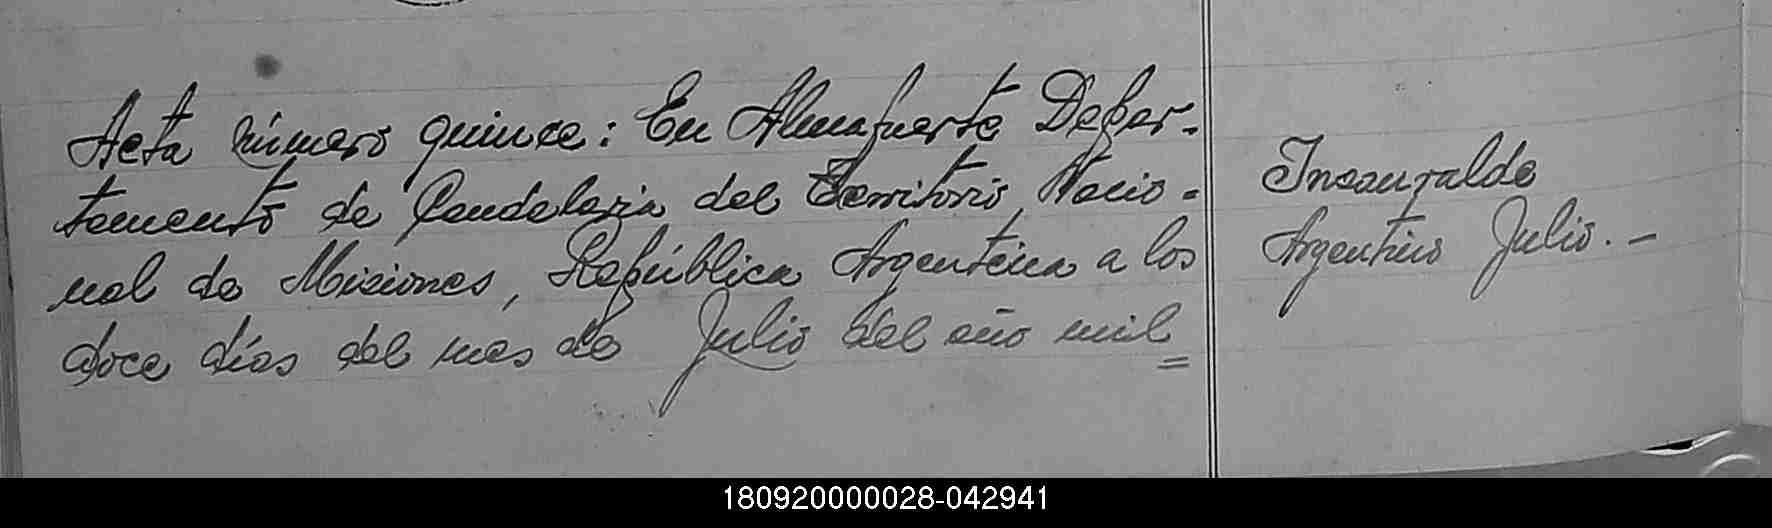 Acta número quince: En Almafuerte Depar-
tamento de Candelaria del Territorio, Nacio=
nal de Misiones, República Argentina a los
doce días del mes de Julio del año mil
=
Insaurralde
Argentino Julio.-
180920000028-042941